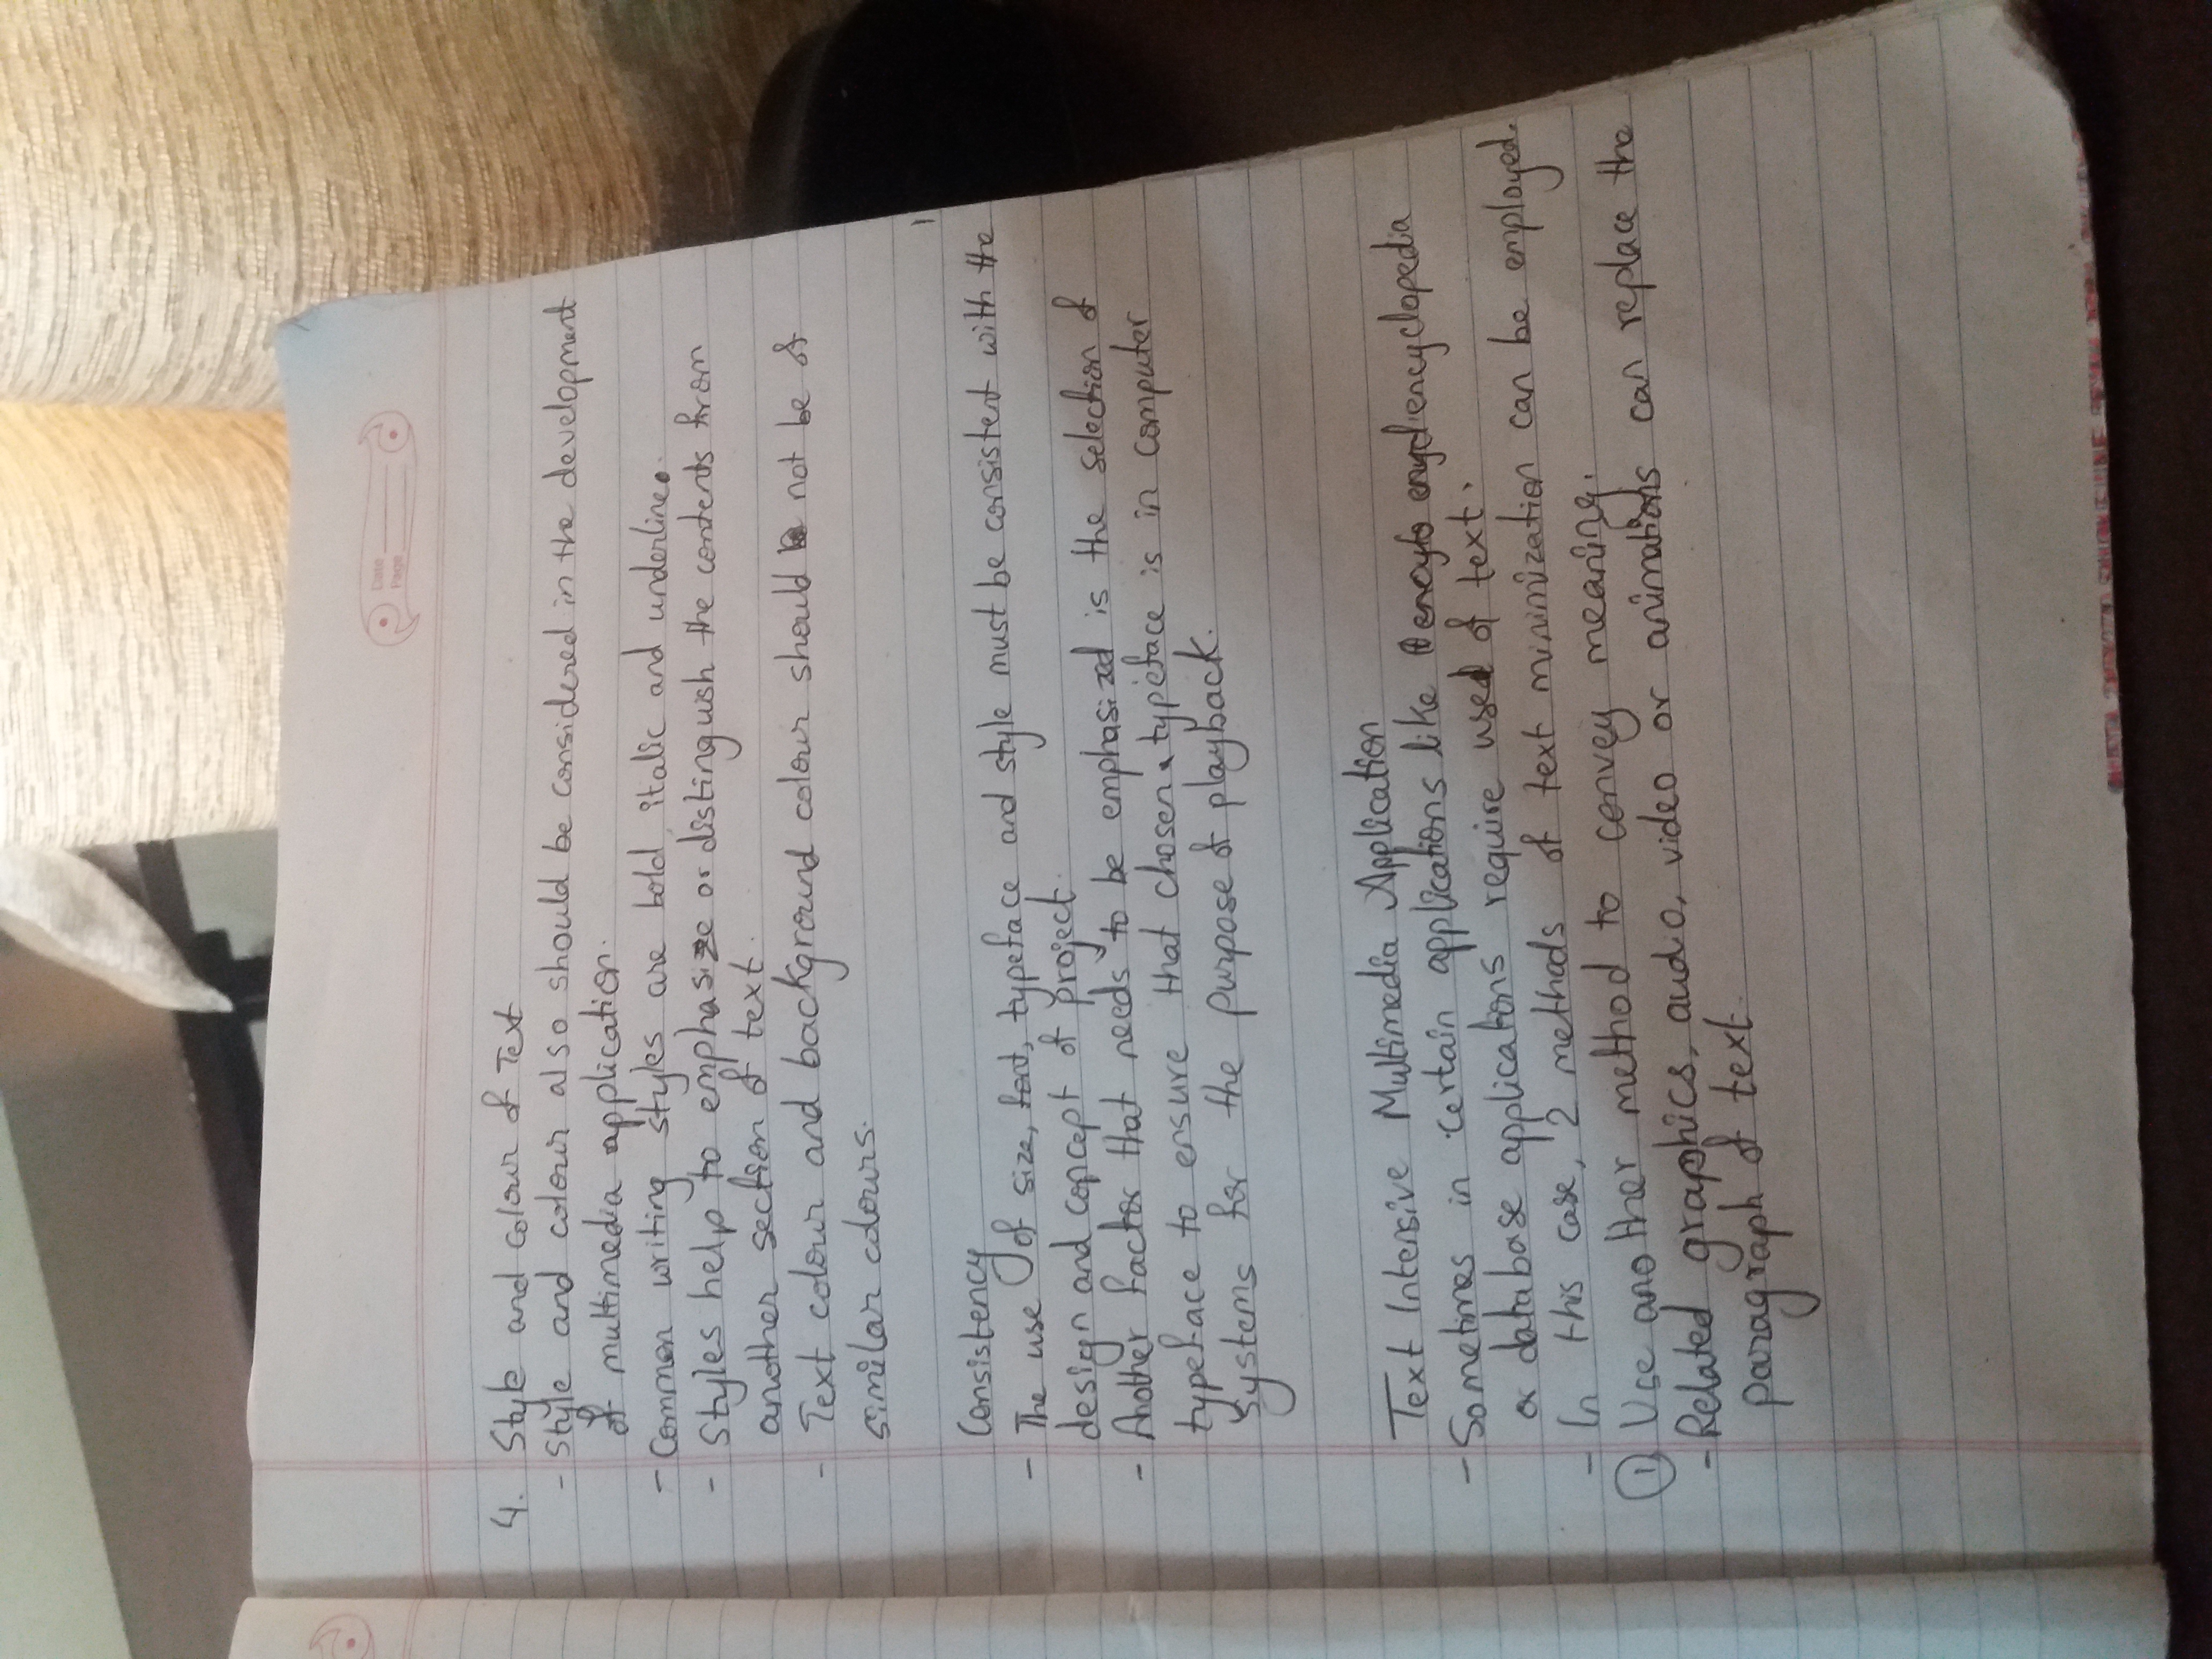 Date
Page
4. Style and colour of Text
- Style and colour also should be considered in the development
of multimedia application.
- Common writing styles are bold, italic and underline.
- Styles help to emphasize or distinguish the contents from
another section of text.
- Text colour and background colour should not be of
similar colours.
Consistency
- The use of size, font, typeface and style must be consistent with the
design and concept of project.
- Another factor that needs to be emphasized is the selection of
typeface to ensure that chosen typeface is in computer
systems for the purpose of playback.
Text Intensive Multimedia Application
- Sometimes in certain applications like encyclopedia
or database applications require used of text.
- In this case, 2 methods of text minimization can be employed.
① Use another method to convey meaning.
- Related graphics, audio, video or animations can replace the
paragraph of text.